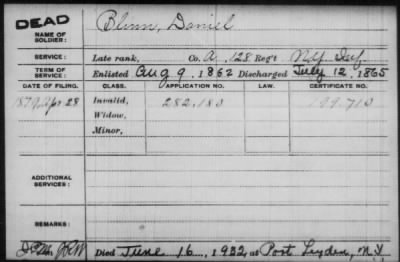 DEAD
NAME OF SOLDIER: Blinn, Daniel
SERVICE: Late rank, Co. A, 128 Reg't N.Y. Inf.
TERM OF SERVICE: Enlisted Aug 9, 1862 Discharged July 12, 1865
DATE OF FILING. CLASS. APPLICATION NO. LAW. CERTIFICATE NO.
1879 Apr 28 Invalid, 282,180 199,710
Widow,
Minor,
ADDITIONAL SERVICES:
REMARKS:
Died June 16, 1932, at Port Leyden, N.Y.